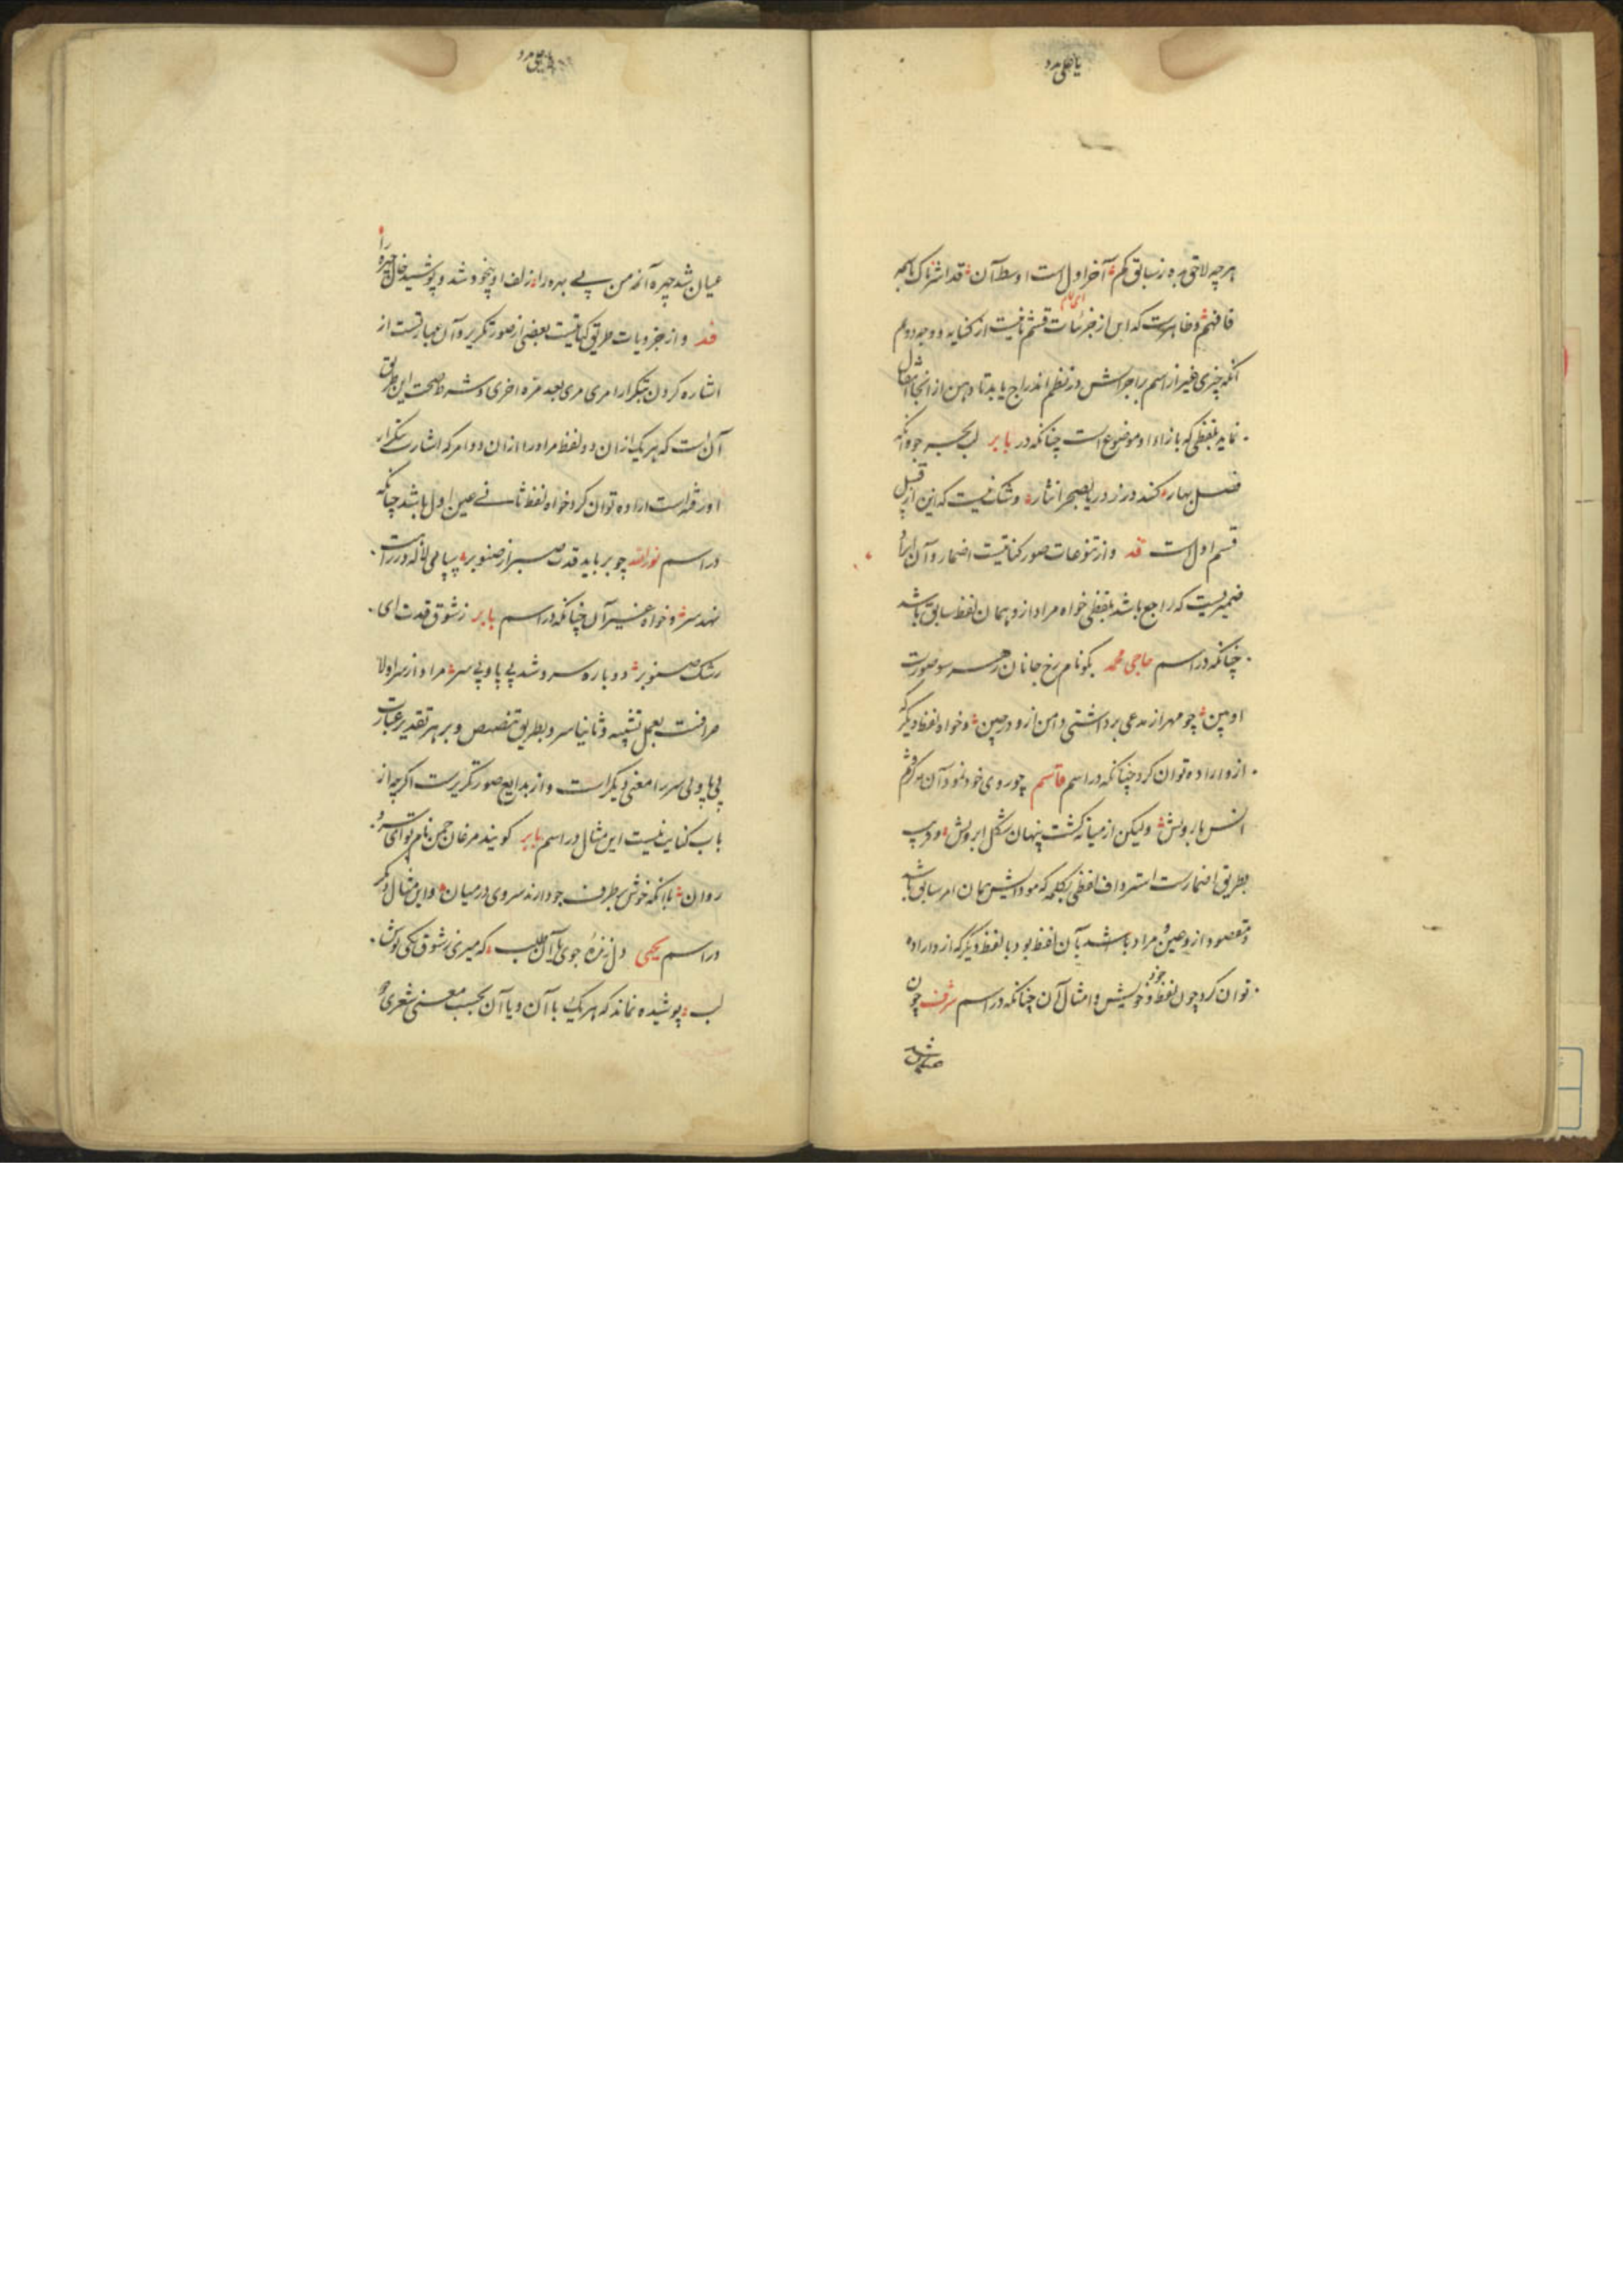 یا علی مدد
هرچه لاحق به ز سابق کم آخر اول است اوسط آن قد اشتراک با همه
فافهم و ظاهرست که این از جزئیات قسم ثانیست از کنایه و وجه دوم
آنکه چیزی غیر از اسم یا جزاش در نظم اندراج یابد تا ذهن از انجا انتقال
نماید بلفظی که بازاء او موضوع است چنانکه در بابر لب بحر جو آنکه
فصل بهار کند در زر دریا بصحرا نثار و شک نیست که این از قبیل
قسم اول است قد و از تنوعات صور کنایتست اضمار و آن ایراد
ضمیریست که راجع باشد بلفظی خواه مراد ازو همان لفظ سابق باشد
چنانکه در اسم حاجی محمد بگو نام رخ جانان ز هر سو صورت
او بین چو مهر از مدعی برداشتی دامن ازو در چین و خواه لفظ دیگر
ازو اراده توان کرد چنانکه در اسم قاسم چو روی خود نمود آن مه گرفتم
انس با رویش ولیکن از میانه گشت پنهان شکل ابرویش و قریب
بطریق اضمارست استرداف لفظی بکلمه که مودایش همان امر سابق باشد
و مقصود ازو عین مراد باشد بآن لفظ بود یا لفظ دیگر که ازو اراده
توان کرد چون لفظ خود و خویش و امثال آن چنانکه در اسم شرف چون
عیان شد چهره آن مه من پی بهر ور از زلف او بیخود شد و پوشید خال چهره را
قد و از جزویات طریق کنایتست بعضی از صور تکریر و آن عبارتست از
اشاره کردن بتکرار امری مری بعد مره اخری و شرط صحت این طریق
آن است که هر یک ازان دو لفظ مراد را ازان دو امر که اشارت بتکرار
او رفته است اراده توان کرد خواه لفظ ثانی عین اول باشد چنانکه
در اسم نورالله چو برباید قدت صبر از صنوبر بپا می لاله در راهت
نهد سر و خواه غیر آن چنانکه در اسم بابر ز شوق قدت ای
رشک صنوبر دو باره سرو شد بی پا و بی سر مراد از سر اولا
حرافست بعمل تشبیه و ثانیا سرو بطریق تنصیص و بر هر تقدیر عبارت
بی پا و بی سر را معنی دیگر است و از بدایع صور تکریرست اگرچه از
باب کنایت نیست این مثال در اسم بابر گویند مرغان چمن نام تو ای سرو
روان با آنکه خوش بر طرف جو دارند سروی در میان و این مثال دیگر
در اسم یحیی دل زنده جوی با آن طلب که میری ز شوق یکی نوش
لب پوشیده نماند که هر یک با آن و یا آن بحسب معنی شعری